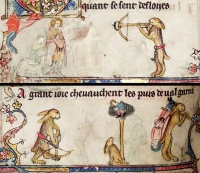 quant se sent desloies
A grant ioie cheuauchent les puis de ualgarni